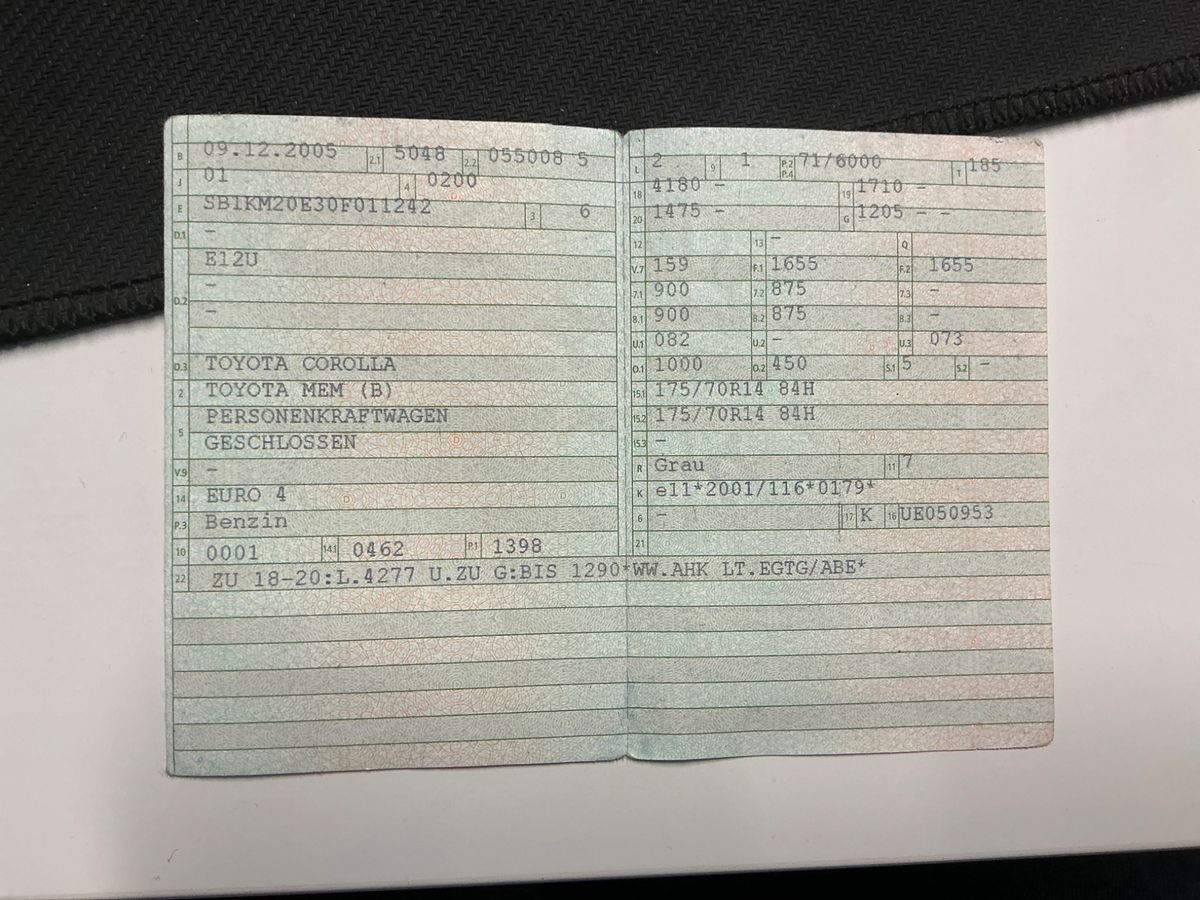 B 09.12.2005 2.1 5048 2.2 055008 5
J 01 4 0200
E SB1KM20E30F011242 3 6
D.1 -
E12U
D.2 -
-
D.3 TOYOTA COROLLA
2 TOYOTA MEM (B)
5 PERSONENKRAFTWAGEN
GESCHLOSSEN
V.9 -
14 EURO 4
P.3 Benzin
10 0001 14.1 0462 P.1 1398
L 2 9 1 P.2 P.4 71/6000 T 185
18 4180 - 19 1710 -
20 1475 - G 1205 - -
12 13 - Q
V.7 159 F.1 1655 F.2 1655
7.1 900 7.2 875 7.3 -
8.1 900 8.2 875 8.3 -
U.1 082 U.2 - U.3 073
O.1 1000 O.2 450 S.1 5 S.2 -
15.1 175/70R14 84H
15.2 175/70R14 84H
15.3 -
R Grau 11 7
K e11*2001/116*0179*
6 - 17 K 16 UE050953
21
22 ZU 18-20:L.4277 U.ZU G:BIS 1290*WW.AHK LT.EGTG/ABE*